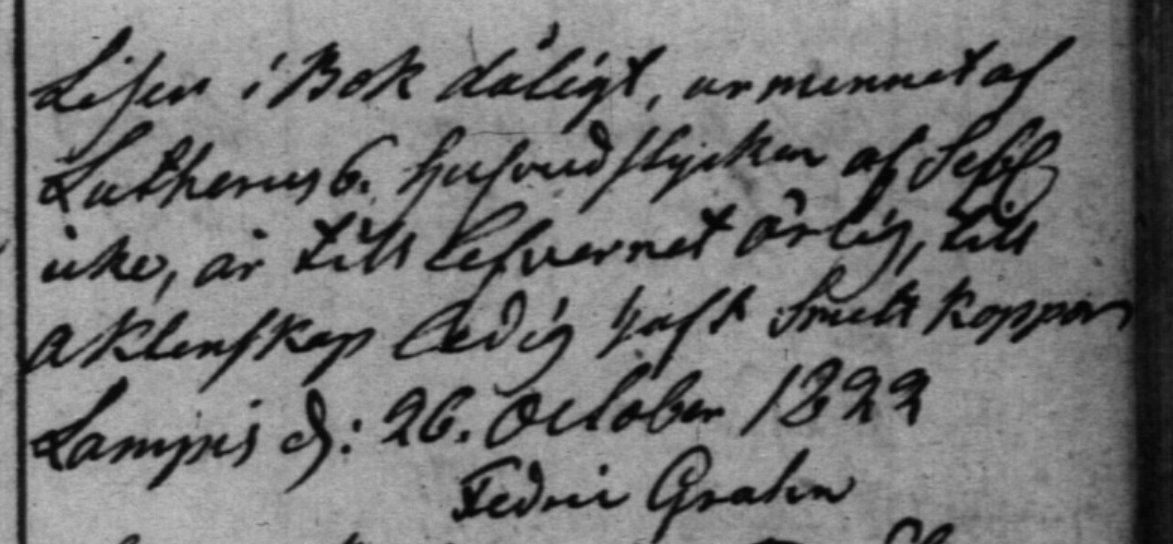 Läser i Bok dåligt, ur minnet af
Lutheri 6. Hufvudstycken af Sebb
icke, är till lefvernet ärlig, till
aktenskap ledig haft Smitt koppor
Lampis d: 26. October 1822
Fedric Grahn